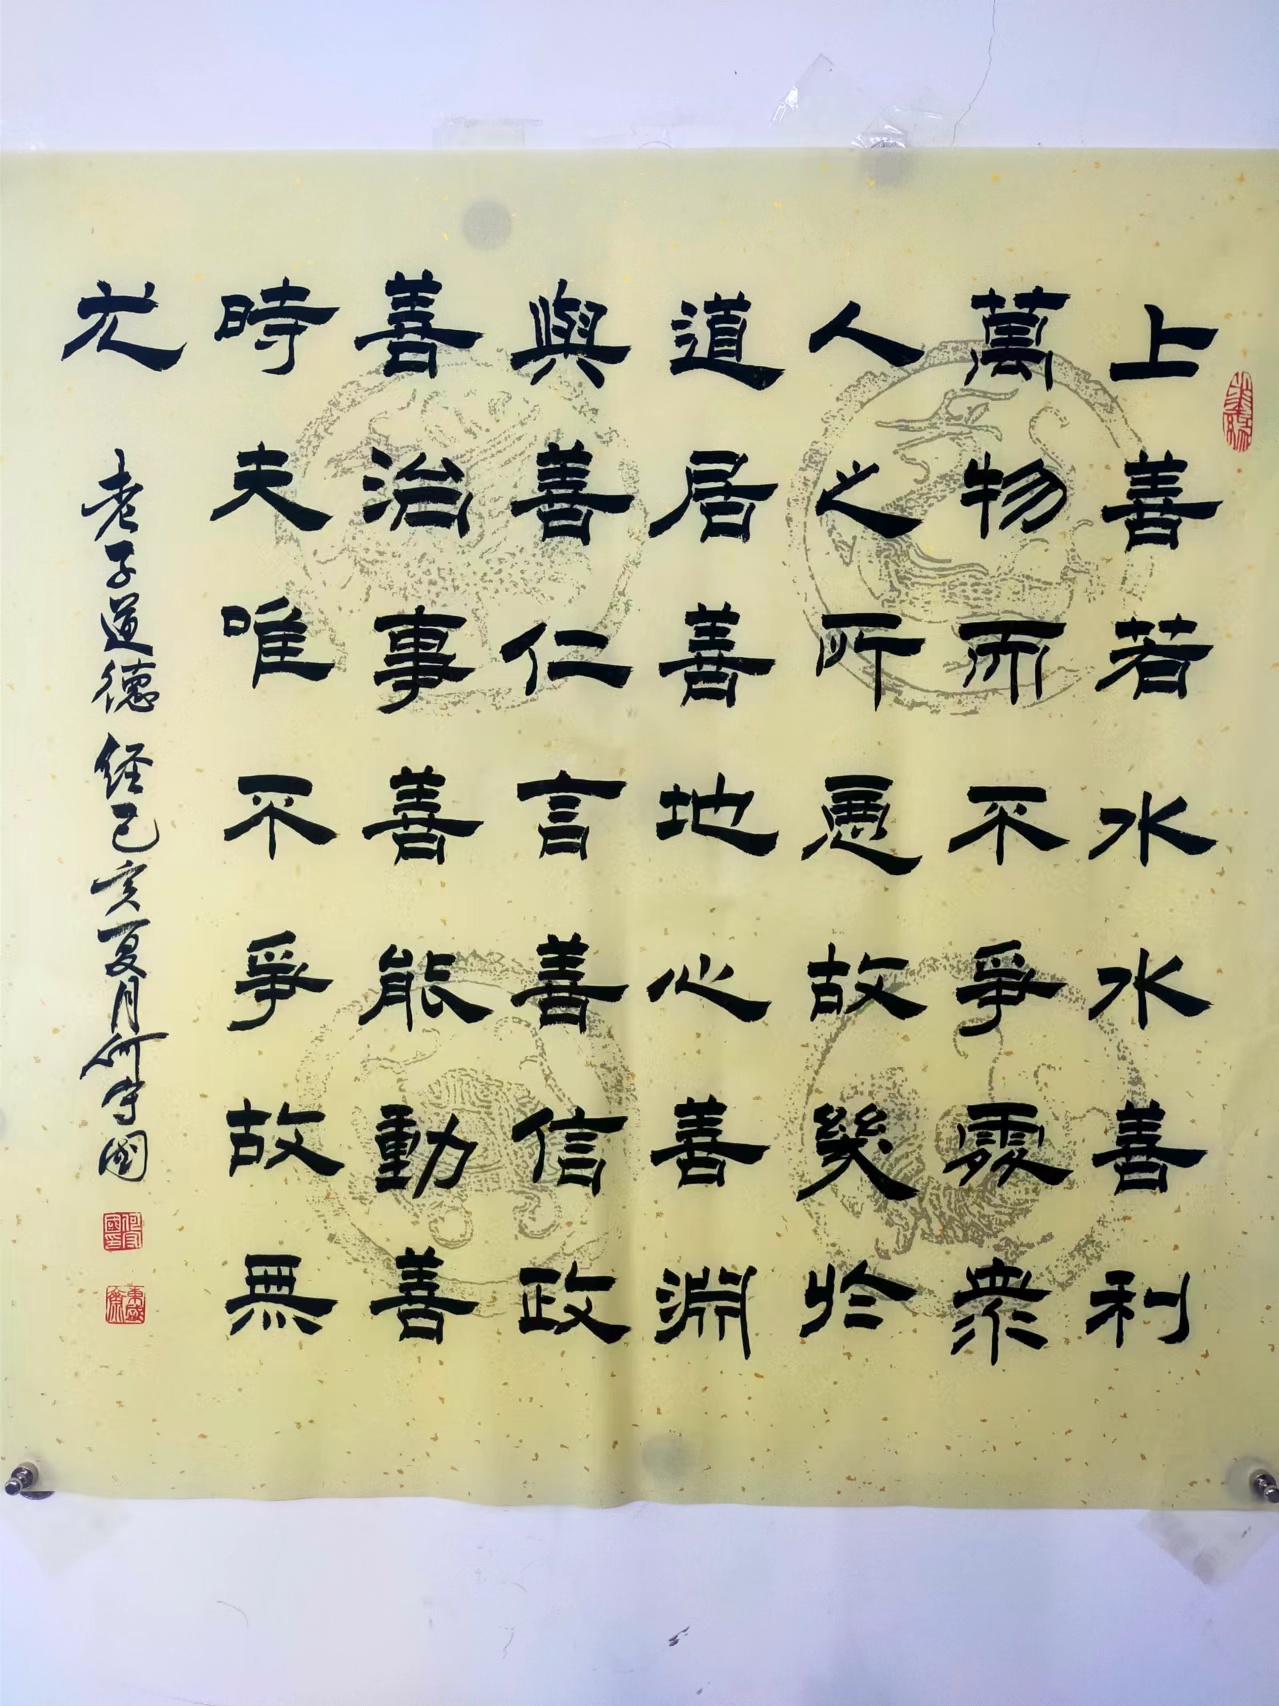 上善若水水善利
萬物而不爭處衆
人之所惡故幾於
道居善地心善淵
與善仁言善信政
善治事善能動善
時夫唯不爭故無
尤
老子道德經己亥夏月何守國